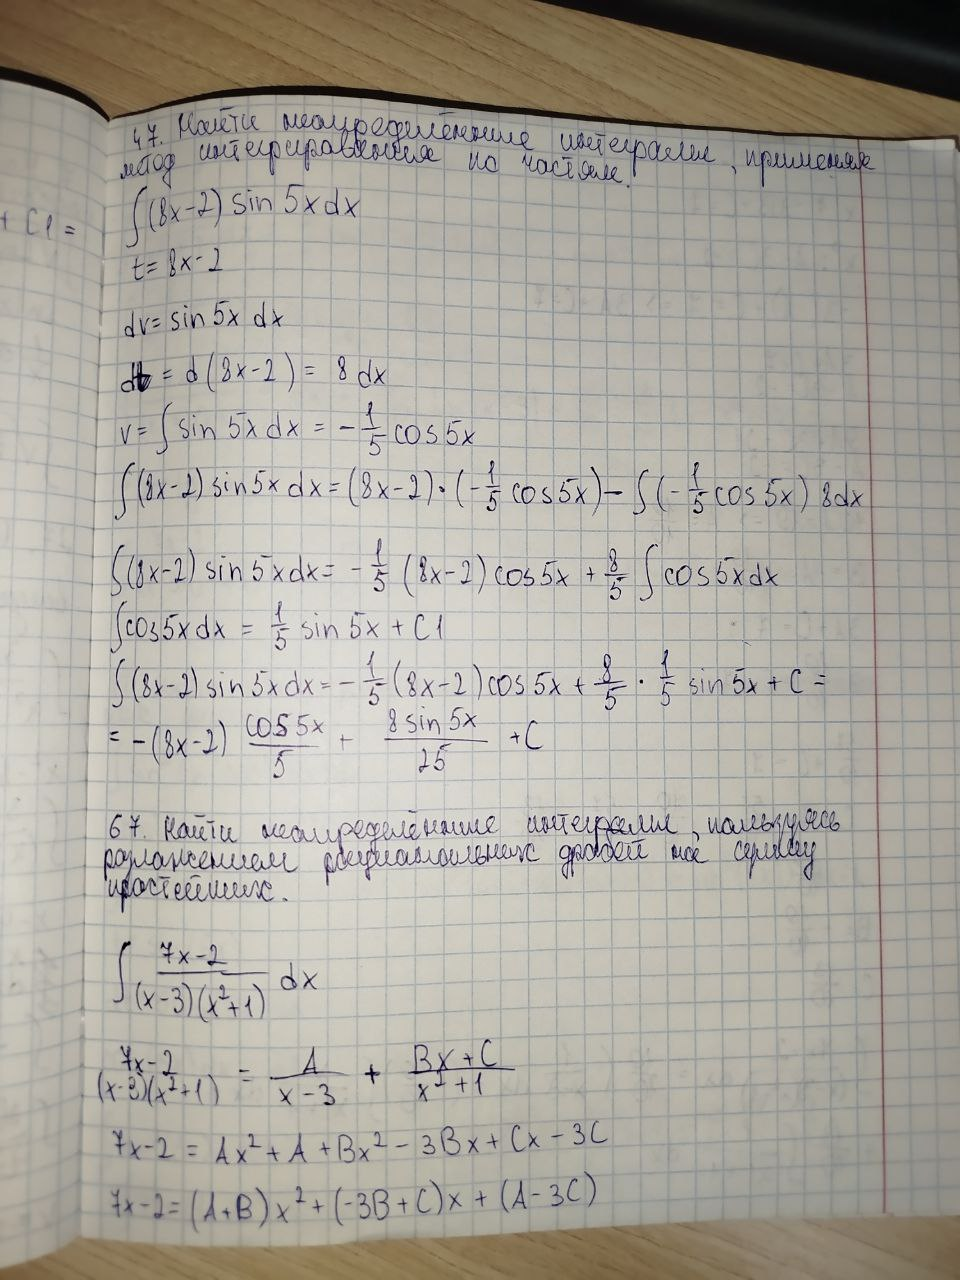 + C1 =
47. Найти неопределённые интегралы, применяя
метод интегрирования по частям.
∫(8x-2) sin 5x dx
t = 8x-2
dv = sin 5x dx
dt = d(8x-2) = 8 dx
v = ∫ sin 5x dx = -1/5 cos 5x
∫(8x-2) sin 5x dx = (8x-2)·(-1/5 cos 5x) - ∫(-1/5 cos 5x) 8dx
∫(8x-2) sin 5x dx = -1/5 (8x-2) cos 5x + 8/5 ∫ cos 5x dx
∫cos 5x dx = 1/5 sin 5x + C1
∫(8x-2) sin 5x dx = -1/5 (8x-2) cos 5x + 8/5 · 1/5 sin 5x + C =
= -(8x-2) cos 5x/5 + 8 sin 5x/25 + C
67. Найти неопределённые интегралы, пользуясь
разложением рациональных дробей на сумму
простейших.
∫ (7x-2)/((x-3)(x²+1)) dx
(7x-2)/((x-3)(x²+1)) = A/(x-3) + (Bx+C)/(x²+1)
7x-2 = Ax² + A + Bx² - 3Bx + Cx - 3C
7x-2 = (A+B)x² + (-3B+C)x + (A-3C)